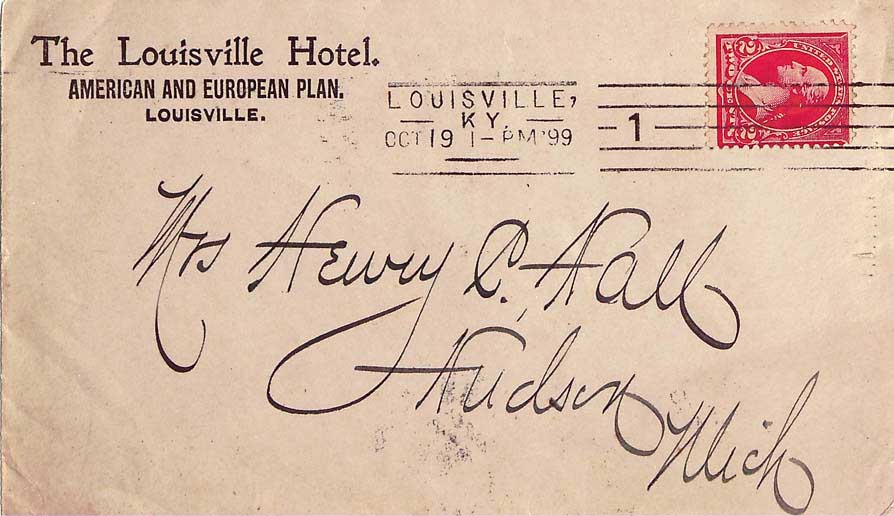 The Louisville Hotel.
AMERICAN AND EUROPEAN PLAN.
LOUISVILLE.
LOUISVILLE,
KY.
OCT 19 1-PM '99
1
Mrs Henry C. Hall
Hudson
Mich